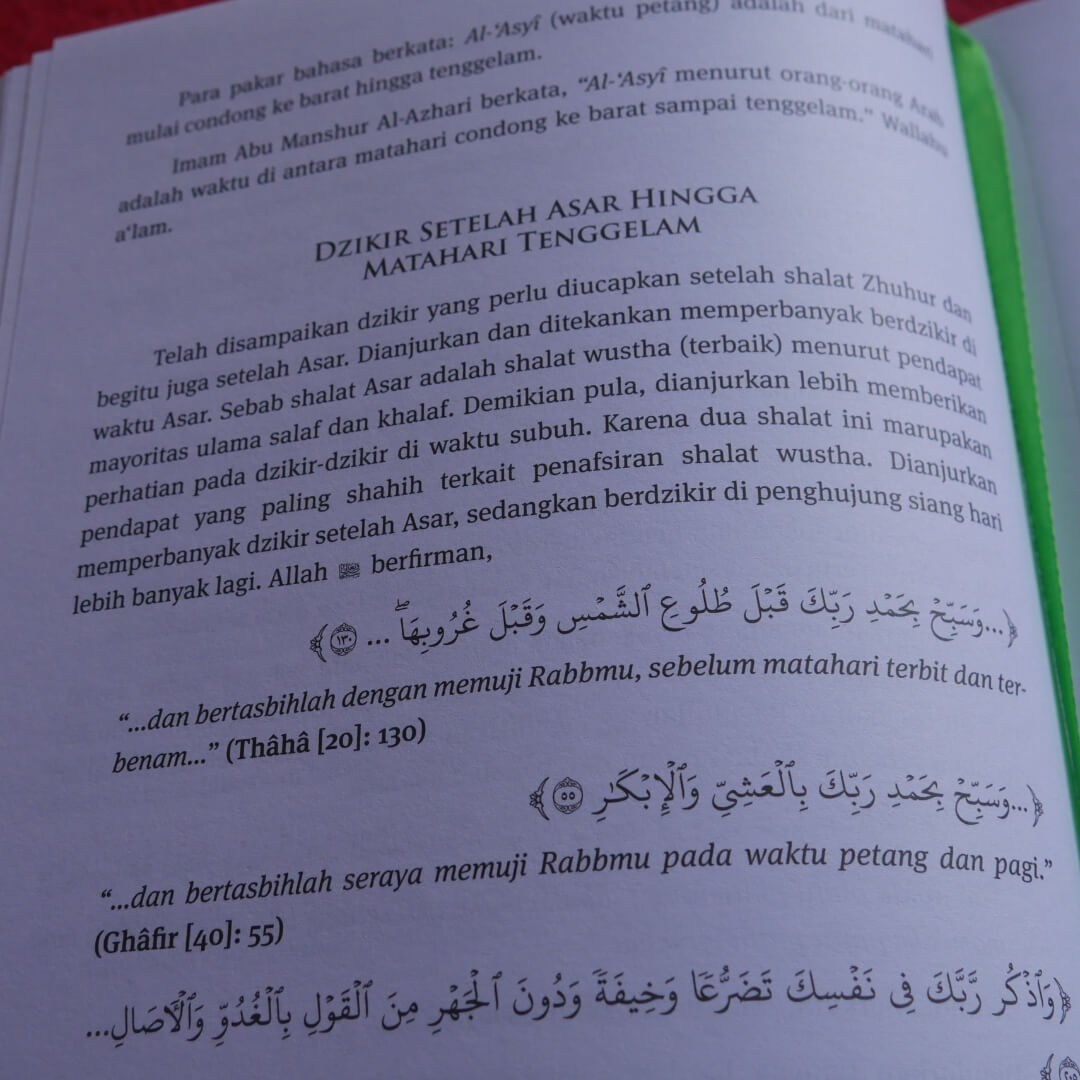 Para pakar bahasa berkata: Al-‘Asyî (waktu petang) adalah dari matahari
mulai condong ke barat hingga tenggelam.
Imam Abu Manshur Al-Azhari berkata, “Al-‘Asyî menurut orang-orang Arab
adalah waktu di antara matahari condong ke barat sampai tenggelam.” Wallahu
a‘lam.
DZIKIR SETELAH ASAR HINGGA
MATAHARI TENGGELAM
Telah disampaikan dzikir yang perlu diucapkan setelah shalat Zhuhur dan
begitu juga setelah Asar. Dianjurkan dan ditekankan memperbanyak berdzikir di
waktu Asar. Sebab shalat Asar adalah shalat wustha (terbaik) menurut pendapat
mayoritas ulama salaf dan khalaf. Demikian pula, dianjurkan lebih memberikan
perhatian pada dzikir-dzikir di waktu subuh. Karena dua shalat ini marupakan
pendapat yang paling shahih terkait penafsiran shalat wustha. Dianjurkan
memperbanyak dzikir setelah Asar, sedangkan berdzikir di penghujung siang hari
lebih banyak lagi. Allah ﷻ berfirman,
﴿...وَسَبِّحْ بِحَمْدِ رَبِّكَ قَبْلَ طُلُوعِ ٱلشَّمْسِ وَقَبْلَ غُرُوبِهَاۖ ... ١٣٠﴾
“...dan bertasbihlah dengan memuji Rabbmu, sebelum matahari terbit dan ter-
benam...” (Thâhâ [20]: 130)
﴿...وَسَبِّحْ بِحَمْدِ رَبِّكَ بِٱلْعَشِيِّ وَٱلْإِبْكَٰرِ ٥٥﴾
“...dan bertasbihlah seraya memuji Rabbmu pada waktu petang dan pagi.”
(Ghâfir [40]: 55)
﴿وَٱذْكُر رَّبَّكَ فِى نَفْسِكَ تَضَرُّعًا وَخِيفَةً وَدُونَ ٱلْجَهْرِ مِنَ ٱلْقَوْلِ بِٱلْغُدُوِّ وَٱلْءَاصَالِ...